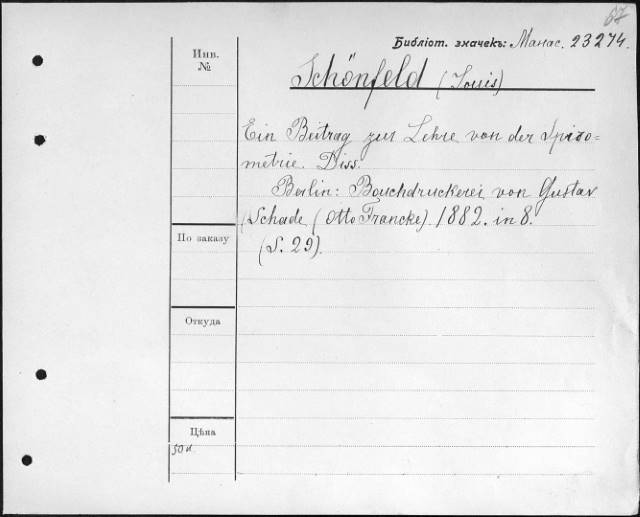 67
Библіот. значекъ: Манас. 23274.
Инв.
№
Schönfeld (Louis)
Ein Beitrag zur Lehre von der Spiro=
metrie. Diss.
Berlin: Bouchdruckerei von Gustav
Schade (Otto Francke). 1882. in 8.
(S. 29).
По заказу
Откуда
Цѣна